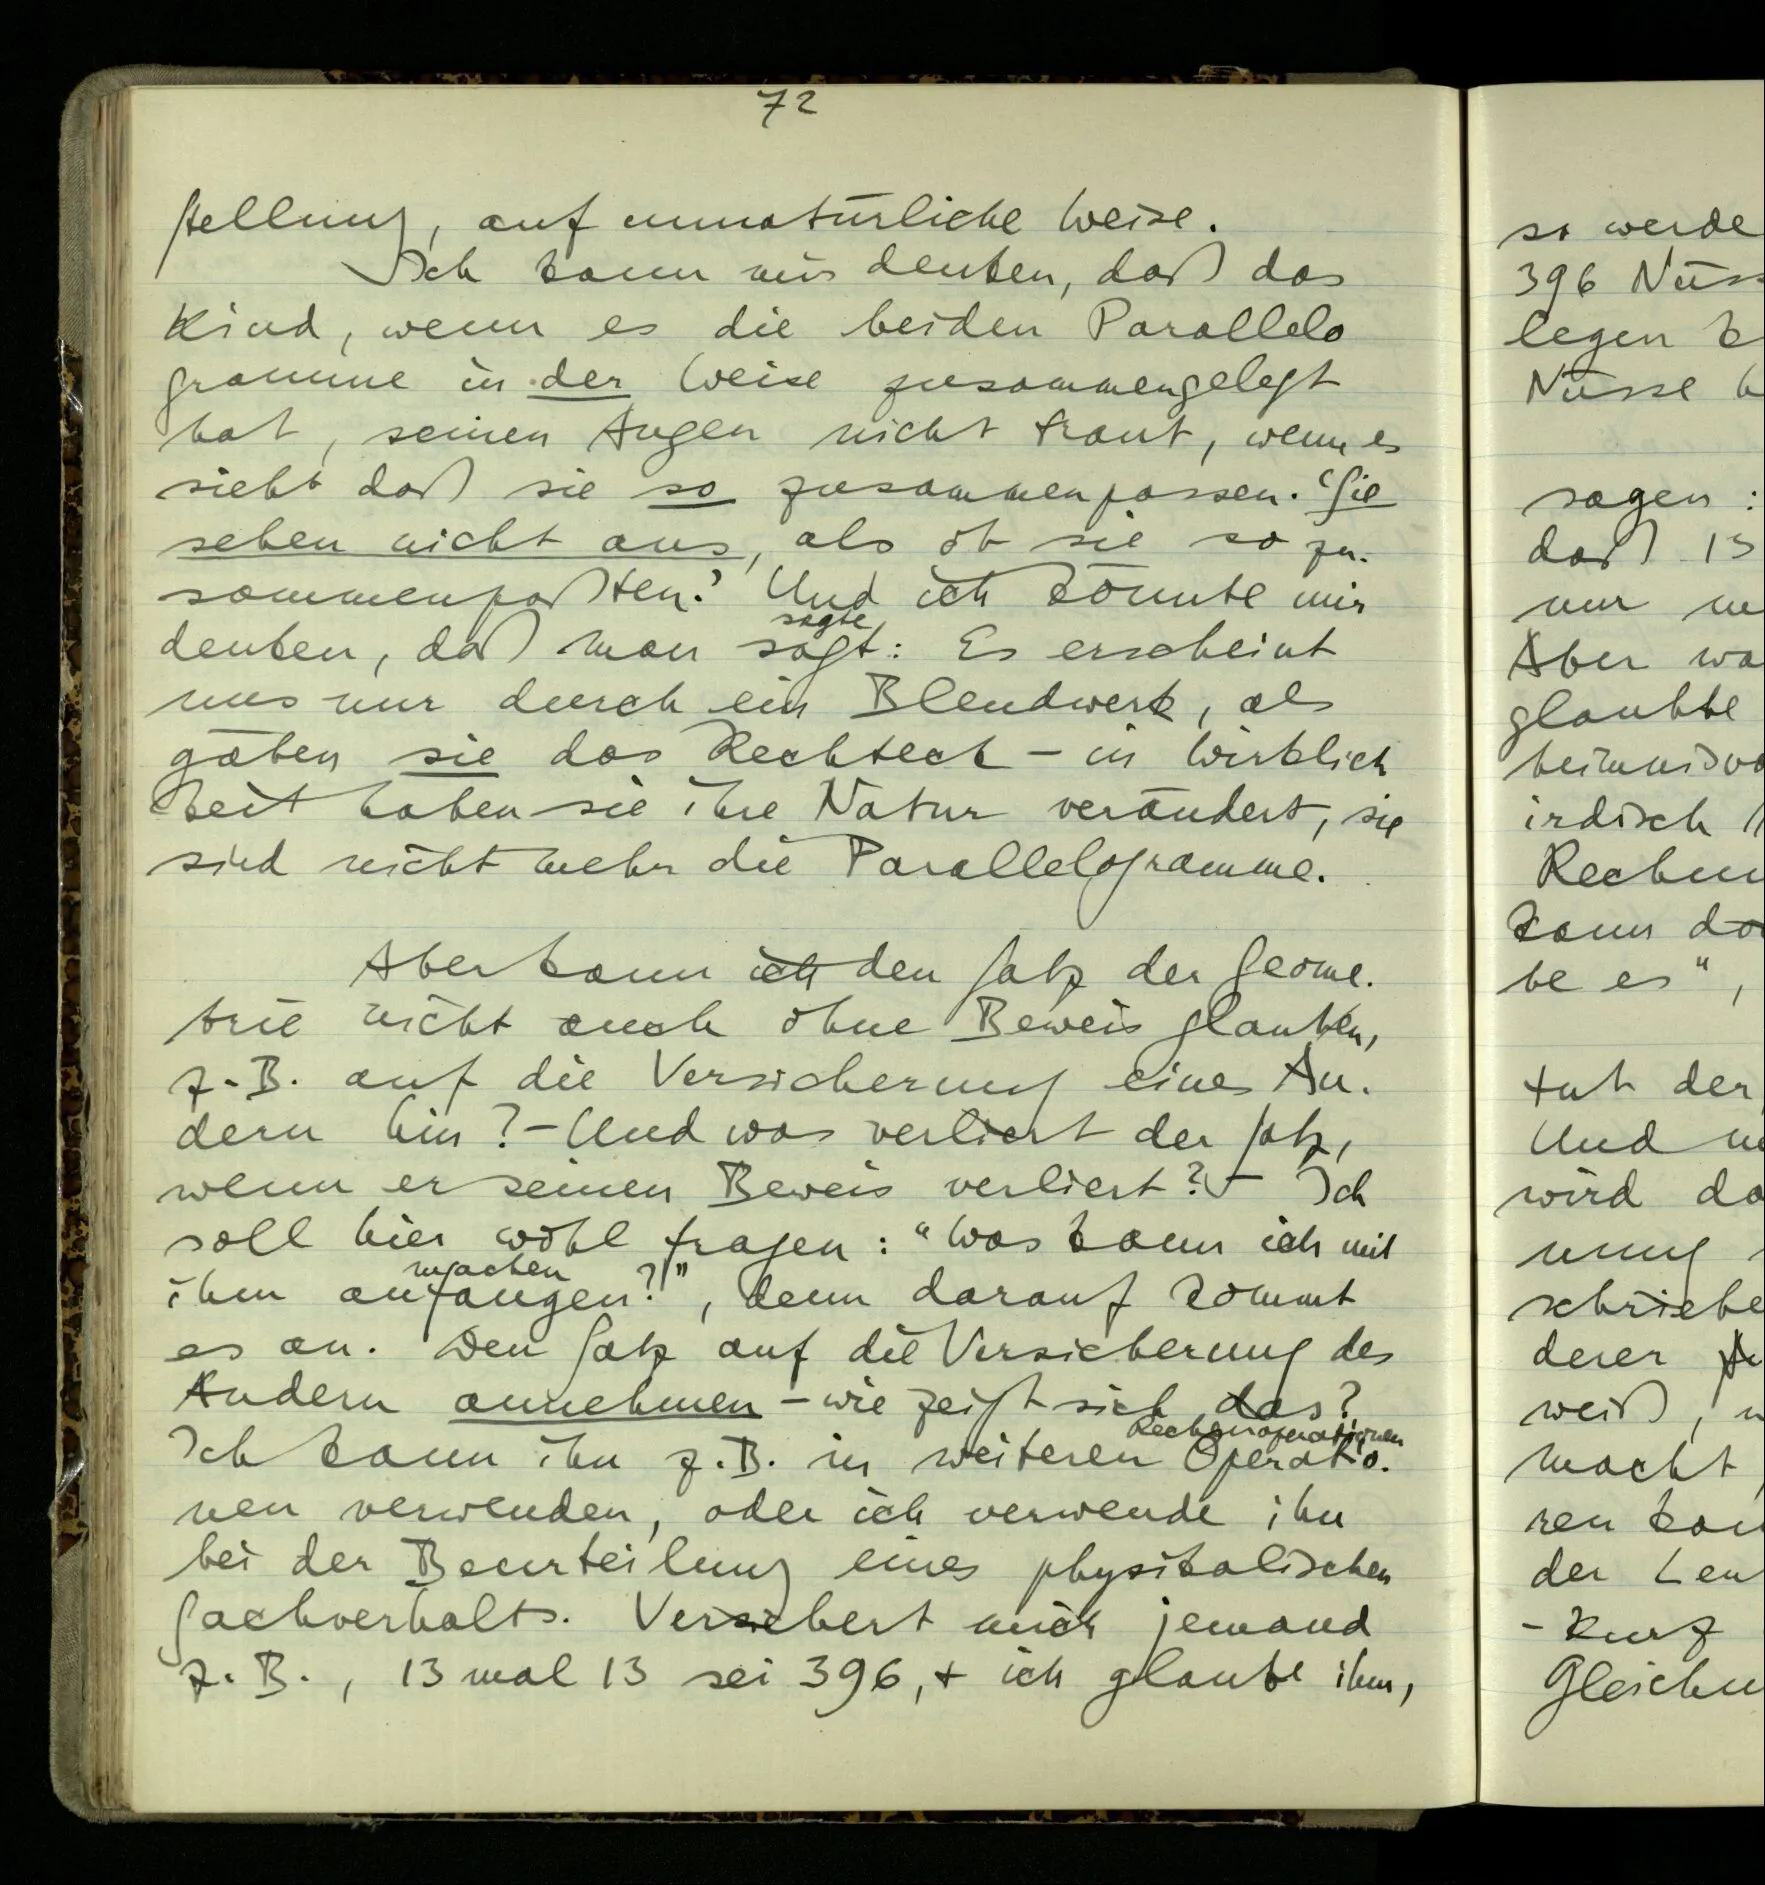 72
stellung, auf unnatürliche Weise.
Ich kann mir denken, daß das
Kind, wenn es die beiden Parallelo
gramme in der Weise zusammengelegt
hat, seinen Augen nicht traut, wenn es
sieht daß sie so zusammenpassen. ‘Sie
sehen nicht aus, als ob sie so zu-
sammenpaßten.’ Und ich könnte mir
sagte
denken, daß man sagt: Es erscheint
uns nur durch ein Blendwerk, als
gäben sie das Rechteck – in Wirklich
keit haben sie ihre Natur verändert, sie
sind nicht mehr die Parallelogramme.
Aber kann ich den Satz der Geome-
trie nicht auch ohne Beweis glauben,
z.B. auf die Versicherung eines An-
dern hin? – Und was verliert der Satz,
wenn er seinen Beweis verliert? – Ich
soll hier wohl fragen: “Was kann ich mit
machen
ihm anfangen?”, denn darauf kommt
es an. Den Satz auf die Versicherung des
Andern annehmen – wie zeigt sich das?
Rechenoperationen
Ich kann ihn z.B. in weiteren Operatio-
nen verwenden, oder ich verwende ihn
bei der Beurteilung eines physikalischen
Sachverhalts. Versichert mich jemand
z.B., 13 mal 13 sei 396, + ich glaube ihm,
so werde
396 Nüss
legen k
Nüsse
sagen:
daß 13
nur
Aber wa
glaubte
heimnisvo
irdisch
Rechnu
kann da
be es”,
tut der
Und
wird da
nung
schriebe
derer
weiß,
macht,
ren kön
der Leu
– kurz
Gleichu